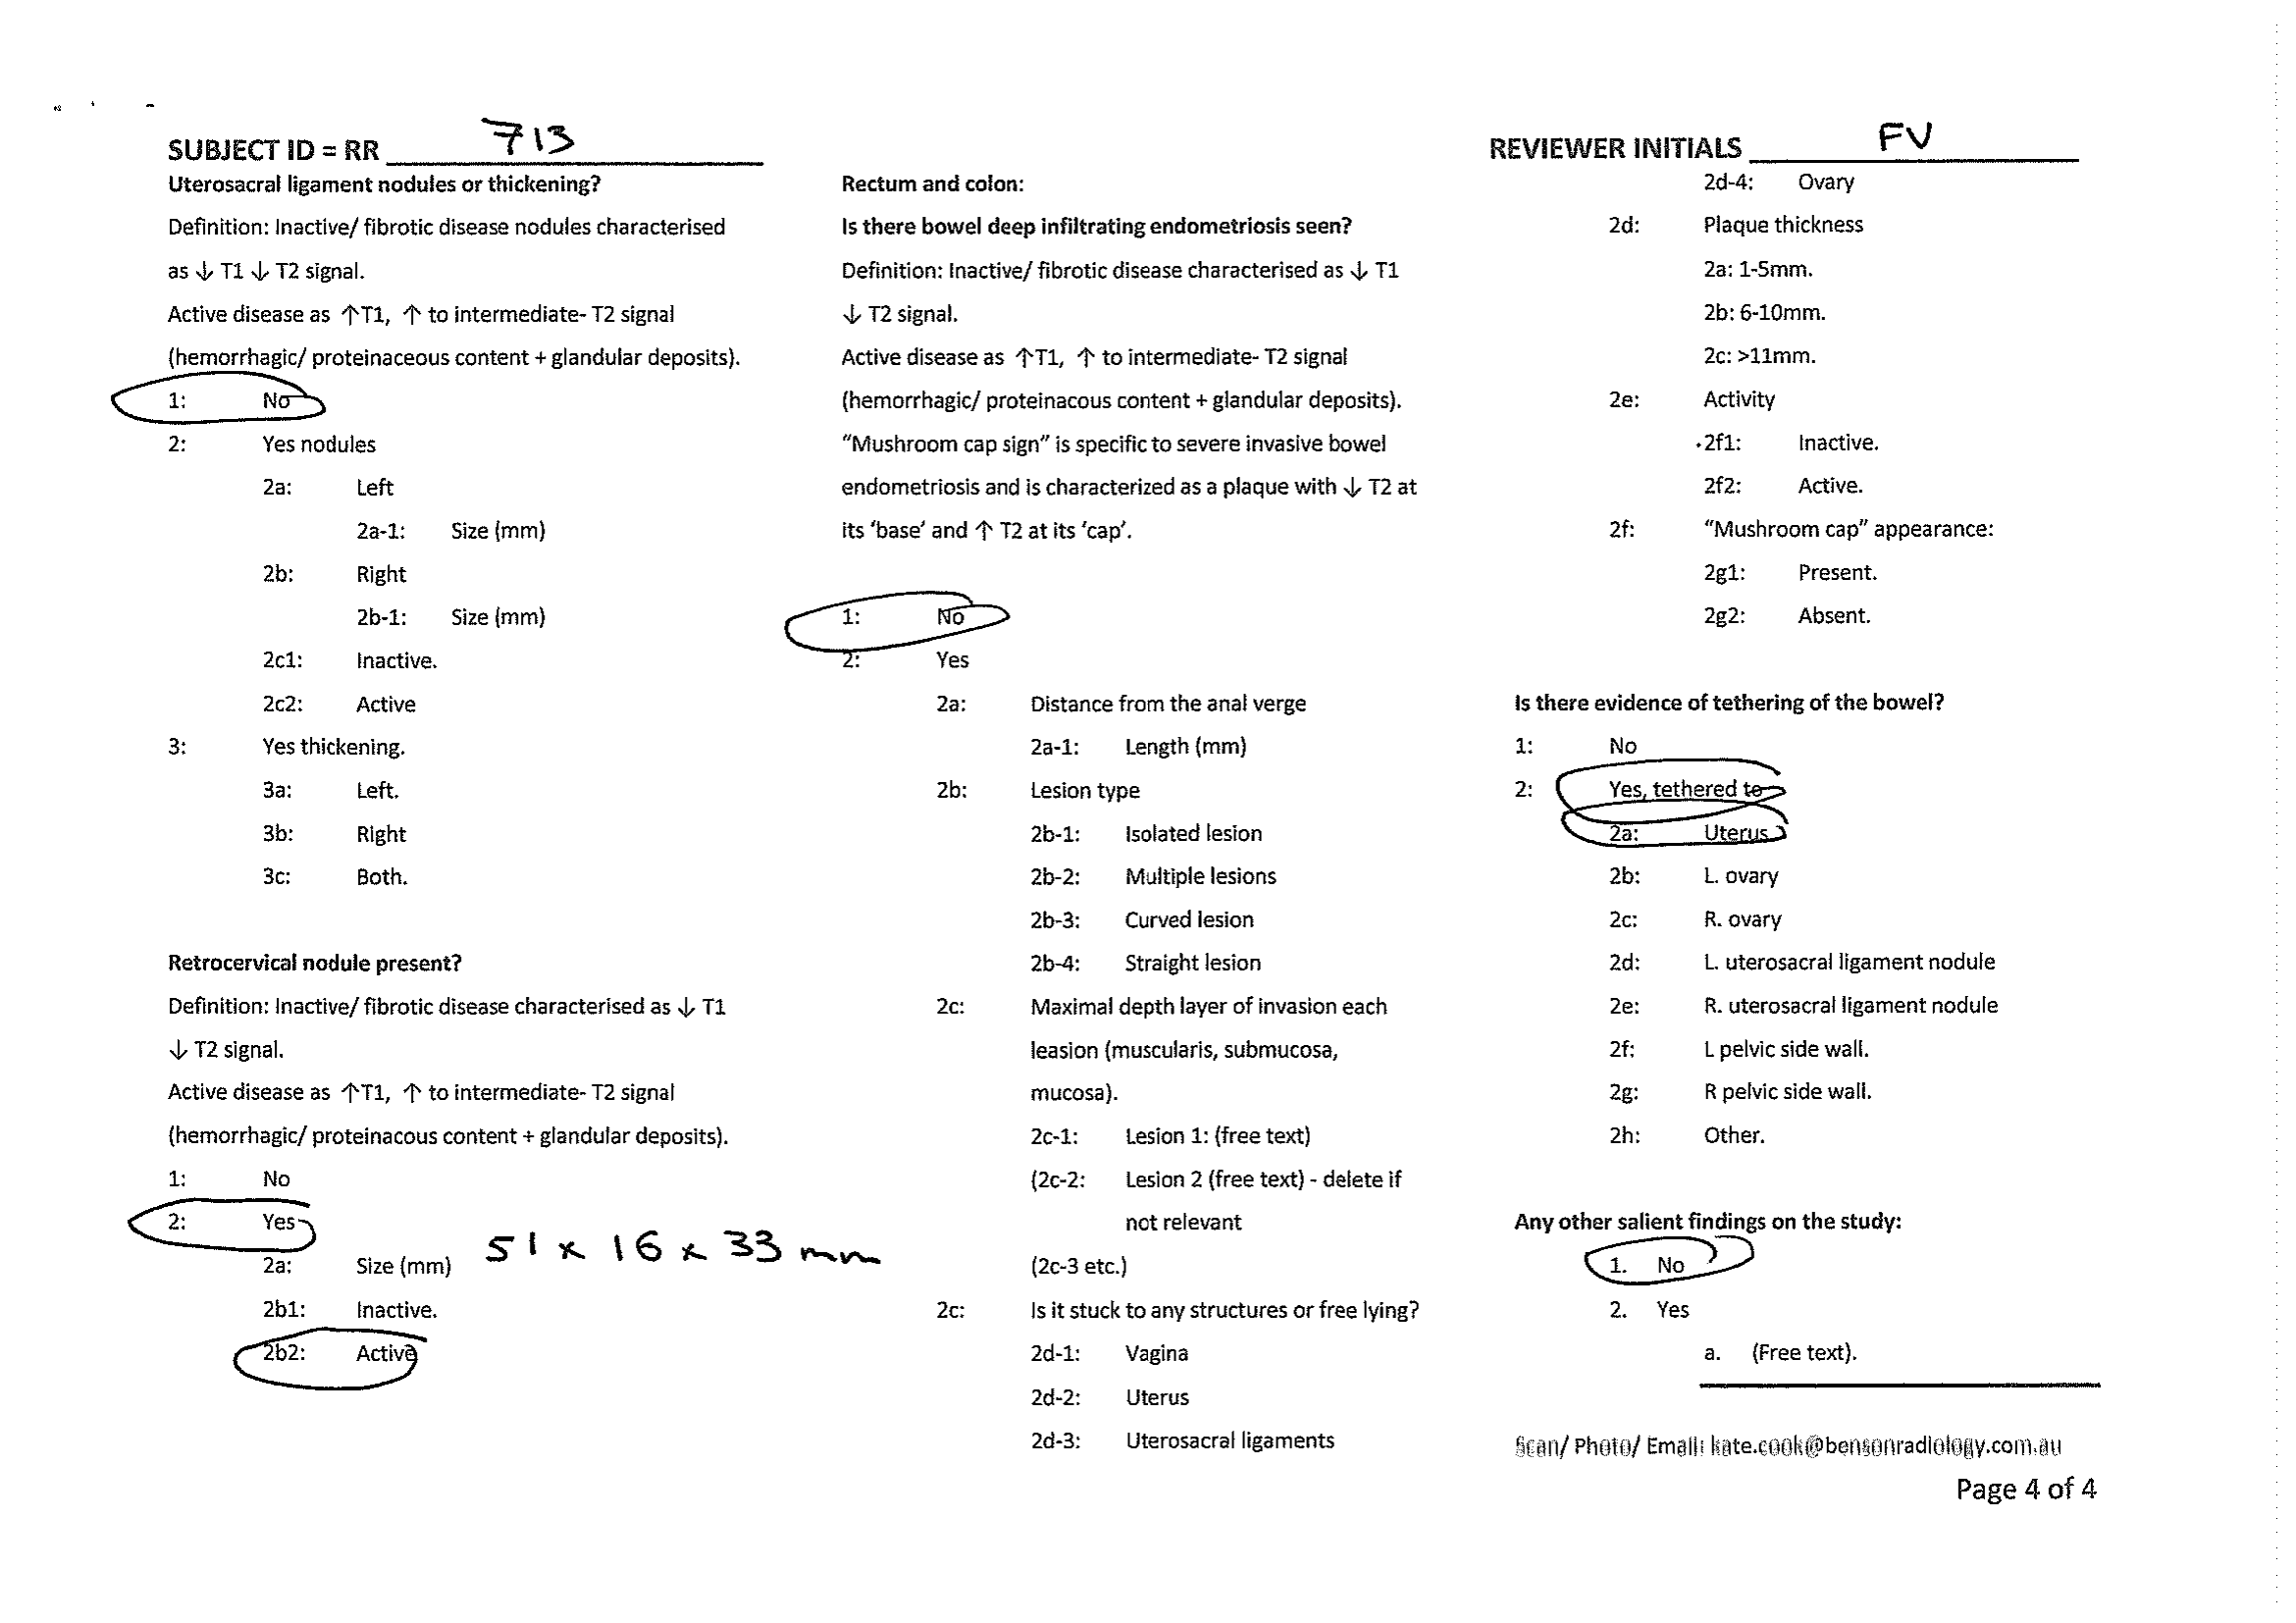 SUBJECT ID = RR 713
REVIEWER INITIALS FV
Uterosacral ligament nodules or thickening?
Definition: Inactive/ fibrotic disease nodules characterised
as ↓ T1 ↓ T2 signal.
Active disease as ↑T1, ↑ to intermediate- T2 signal
(hemorrhagic/ proteinaceous content + glandular deposits).
1: No
2: Yes nodules
2a: Left
2a-1: Size (mm)
2b: Right
2b-1: Size (mm)
2c1: Inactive.
2c2: Active
3: Yes thickening.
3a: Left.
3b: Right
3c: Both.
Retrocervical nodule present?
Definition: Inactive/ fibrotic disease characterised as ↓ T1
↓ T2 signal.
Active disease as ↑T1, ↑ to intermediate- T2 signal
(hemorrhagic/ proteinacous content + glandular deposits).
1: No
2: Yes
2a: Size (mm) 51 x 16 x 33 mm
2b1: Inactive.
2b2: Active
Rectum and colon:
Is there bowel deep infiltrating endometriosis seen?
Definition: Inactive/ fibrotic disease characterised as ↓ T1
↓ T2 signal.
Active disease as ↑T1, ↑ to intermediate- T2 signal
(hemorrhagic/ proteinacous content + glandular deposits).
“Mushroom cap sign” is specific to severe invasive bowel
endometriosis and is characterized as a plaque with ↓ T2 at
its ‘base’ and ↑ T2 at its ‘cap’.
1: No
2: Yes
2a: Distance from the anal verge
2a-1: Length (mm)
2b: Lesion type
2b-1: Isolated lesion
2b-2: Multiple lesions
2b-3: Curved lesion
2b-4: Straight lesion
2c: Maximal depth layer of invasion each
leasion (muscularis, submucosa,
mucosa).
2c-1: Lesion 1: (free text)
(2c-2: Lesion 2 (free text) - delete if
not relevant
(2c-3 etc.)
2c: Is it stuck to any structures or free lying?
2d-1: Vagina
2d-2: Uterus
2d-3: Uterosacral ligaments
2d-4: Ovary
2d: Plaque thickness
2a: 1-5mm.
2b: 6-10mm.
2c: >11mm.
2e: Activity
2f1: Inactive.
2f2: Active.
2f: “Mushroom cap” appearance:
2g1: Present.
2g2: Absent.
Is there evidence of tethering of the bowel?
1: No
2: Yes, tethered to
2a: Uterus
2b: L. ovary
2c: R. ovary
2d: L. uterosacral ligament nodule
2e: R. uterosacral ligament nodule
2f: L pelvic side wall.
2g: R pelvic side wall.
2h: Other.
Any other salient findings on the study:
1. No
2. Yes
a. (Free text).
Scan/ Photo/ Email: kate.cook@bensonradiology.com.au
Page 4 of 4